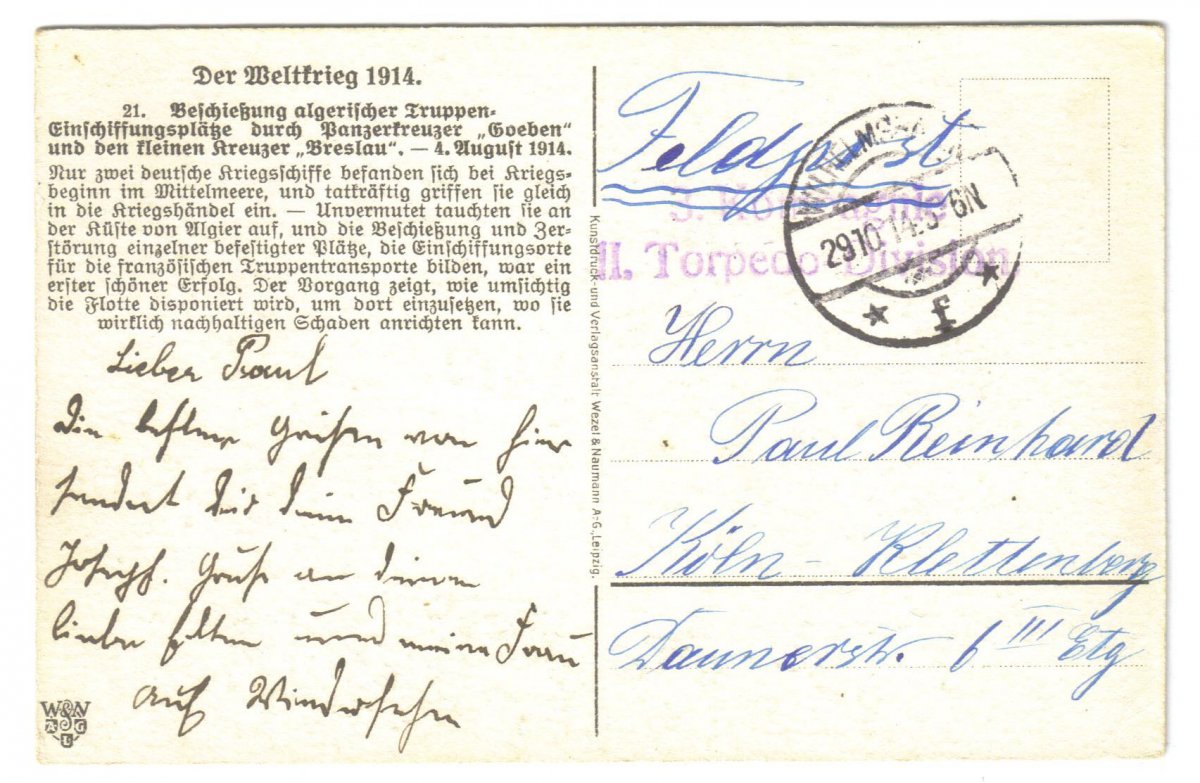 Der Weltkrieg 1914.
21. Beschießung algerischer Truppen-
Einschiffungsplätze durch Panzerkreuzer „Goeben“
und den kleinen Kreuzer „Breslau“. — 4. August 1914.
Nur zwei deutsche Kriegsschiffe befanden sich bei Kriegs-
beginn im Mittelmeere, und tatkräftig griffen sie gleich
in die Kriegshändel ein. — Unvermutet tauchten sie an
der Küste von Algier auf, und die Beschießung und Zer-
störung einzelner befestigter Plätze, die Einschiffungsorte
für die französischen Truppentransporte bilden, war ein
erster schöner Erfolg. Der Vorgang zeigt, wie umsichtig
die Flotte disponiert wird, um dort einzusetzen, wo sie
wirklich nachhaltigen Schaden anrichten kann.
Lieber Paul
Die letzten Grüßen von hier
sendet dir dein Freund
Joseph. Grüße an deinen
lieben Eltern und meine Frau
auf Wiedersehn
W&N
A G
L
Kunstdruck- und Verlagsanstalt Wezel & Naumann A-G., Leipzig.
Feldpost
3. Kompagnie
II. Torpedo Division
29.10.14.5-6N
f
Herrn
Paul Reinhard
Köln - Klettenberg
Daunerstr. 6 III Etg